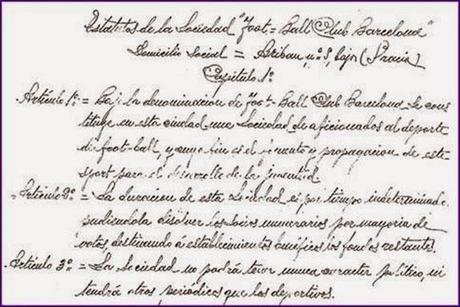 Estatutos de la Sociedad "Foot-Ball Club Barcelona"
Domicilio Social = Aribau, nº 8, bajos (Gracia)
Capítulo 1º
Artículo 1º = Bajo la denominacion de Foot-Ball Club Barcelona se cons
tituye en esta ciudad una Sociedad de aficionados al deporte
de foot-ball, y cuyo fin es el fomento y propagacion de este
sport para el desarrollo de la juventud
Artículo 2º = La duracion de esta Sociedad es por tiempo indeterminado
pudiendola disolver los socios numerarios por mayoria de
votos, destinando á establecimientos benéficos los fondos restantes.
Artículo 3º = La Sociedad no podrá tener nunca caracter político, ni
tendrá otros periódicos que los deportivos.